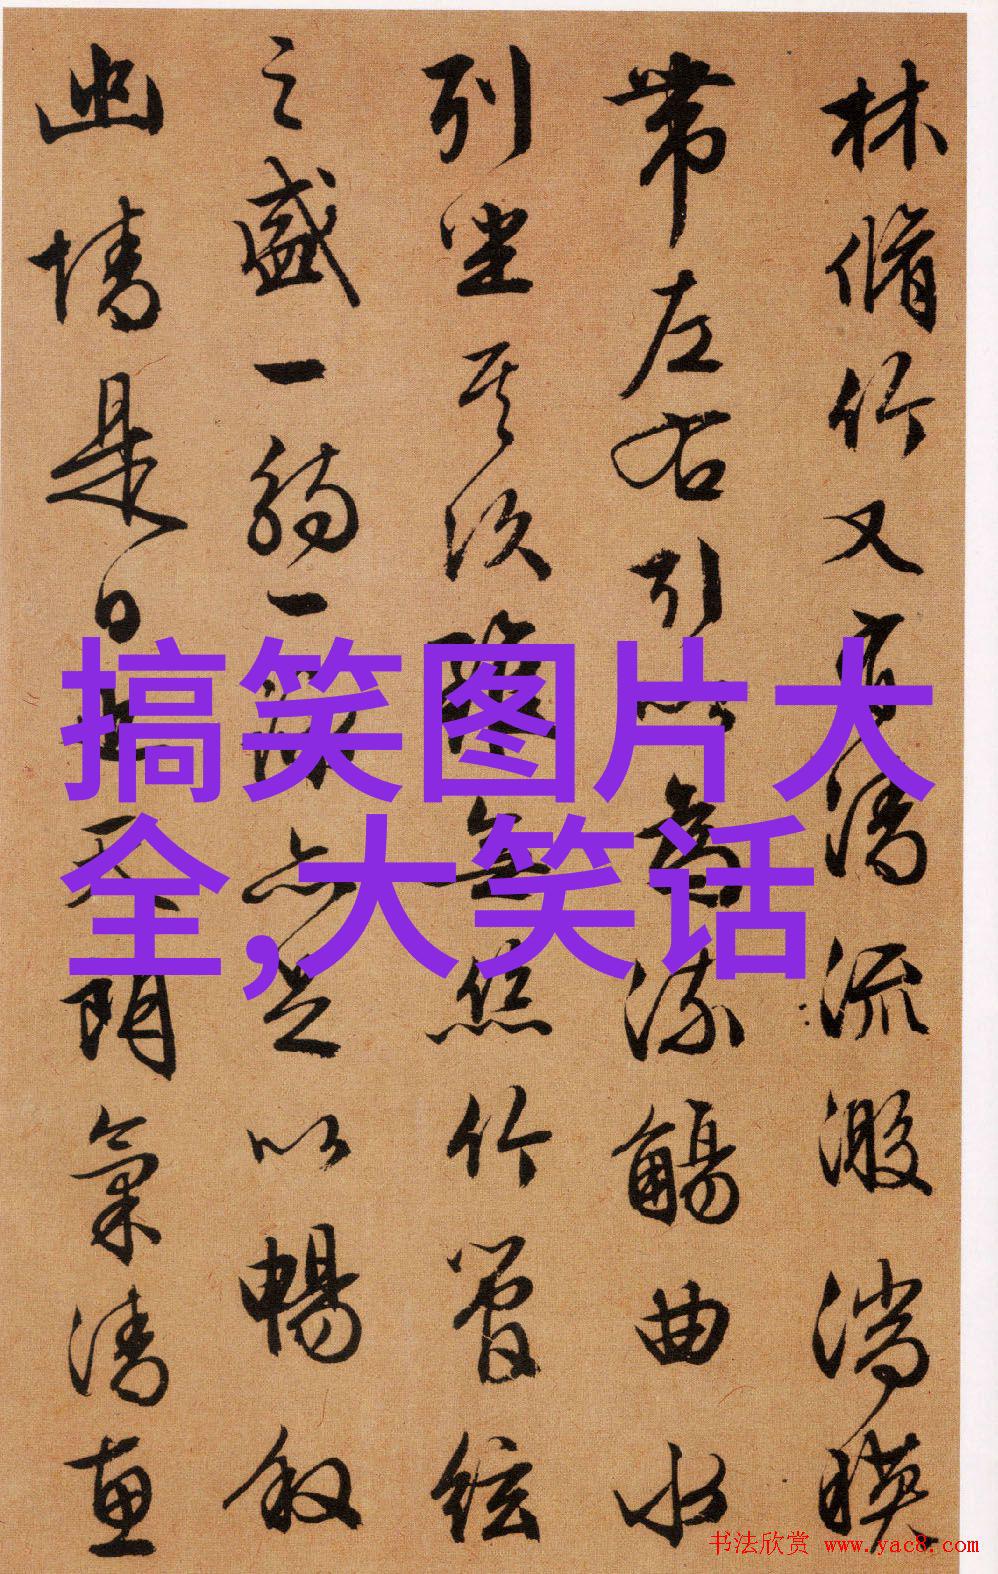 林脩竹又有清流激湍暎
帶左右引以為流觴曲水
列坐其次雖無絲竹管絃
之盛一觴一詠亦足以暢叙
幽情是日也天朗氣清惠
搞笑图片大
全,大笑话
书法欣赏 www.yac8.com